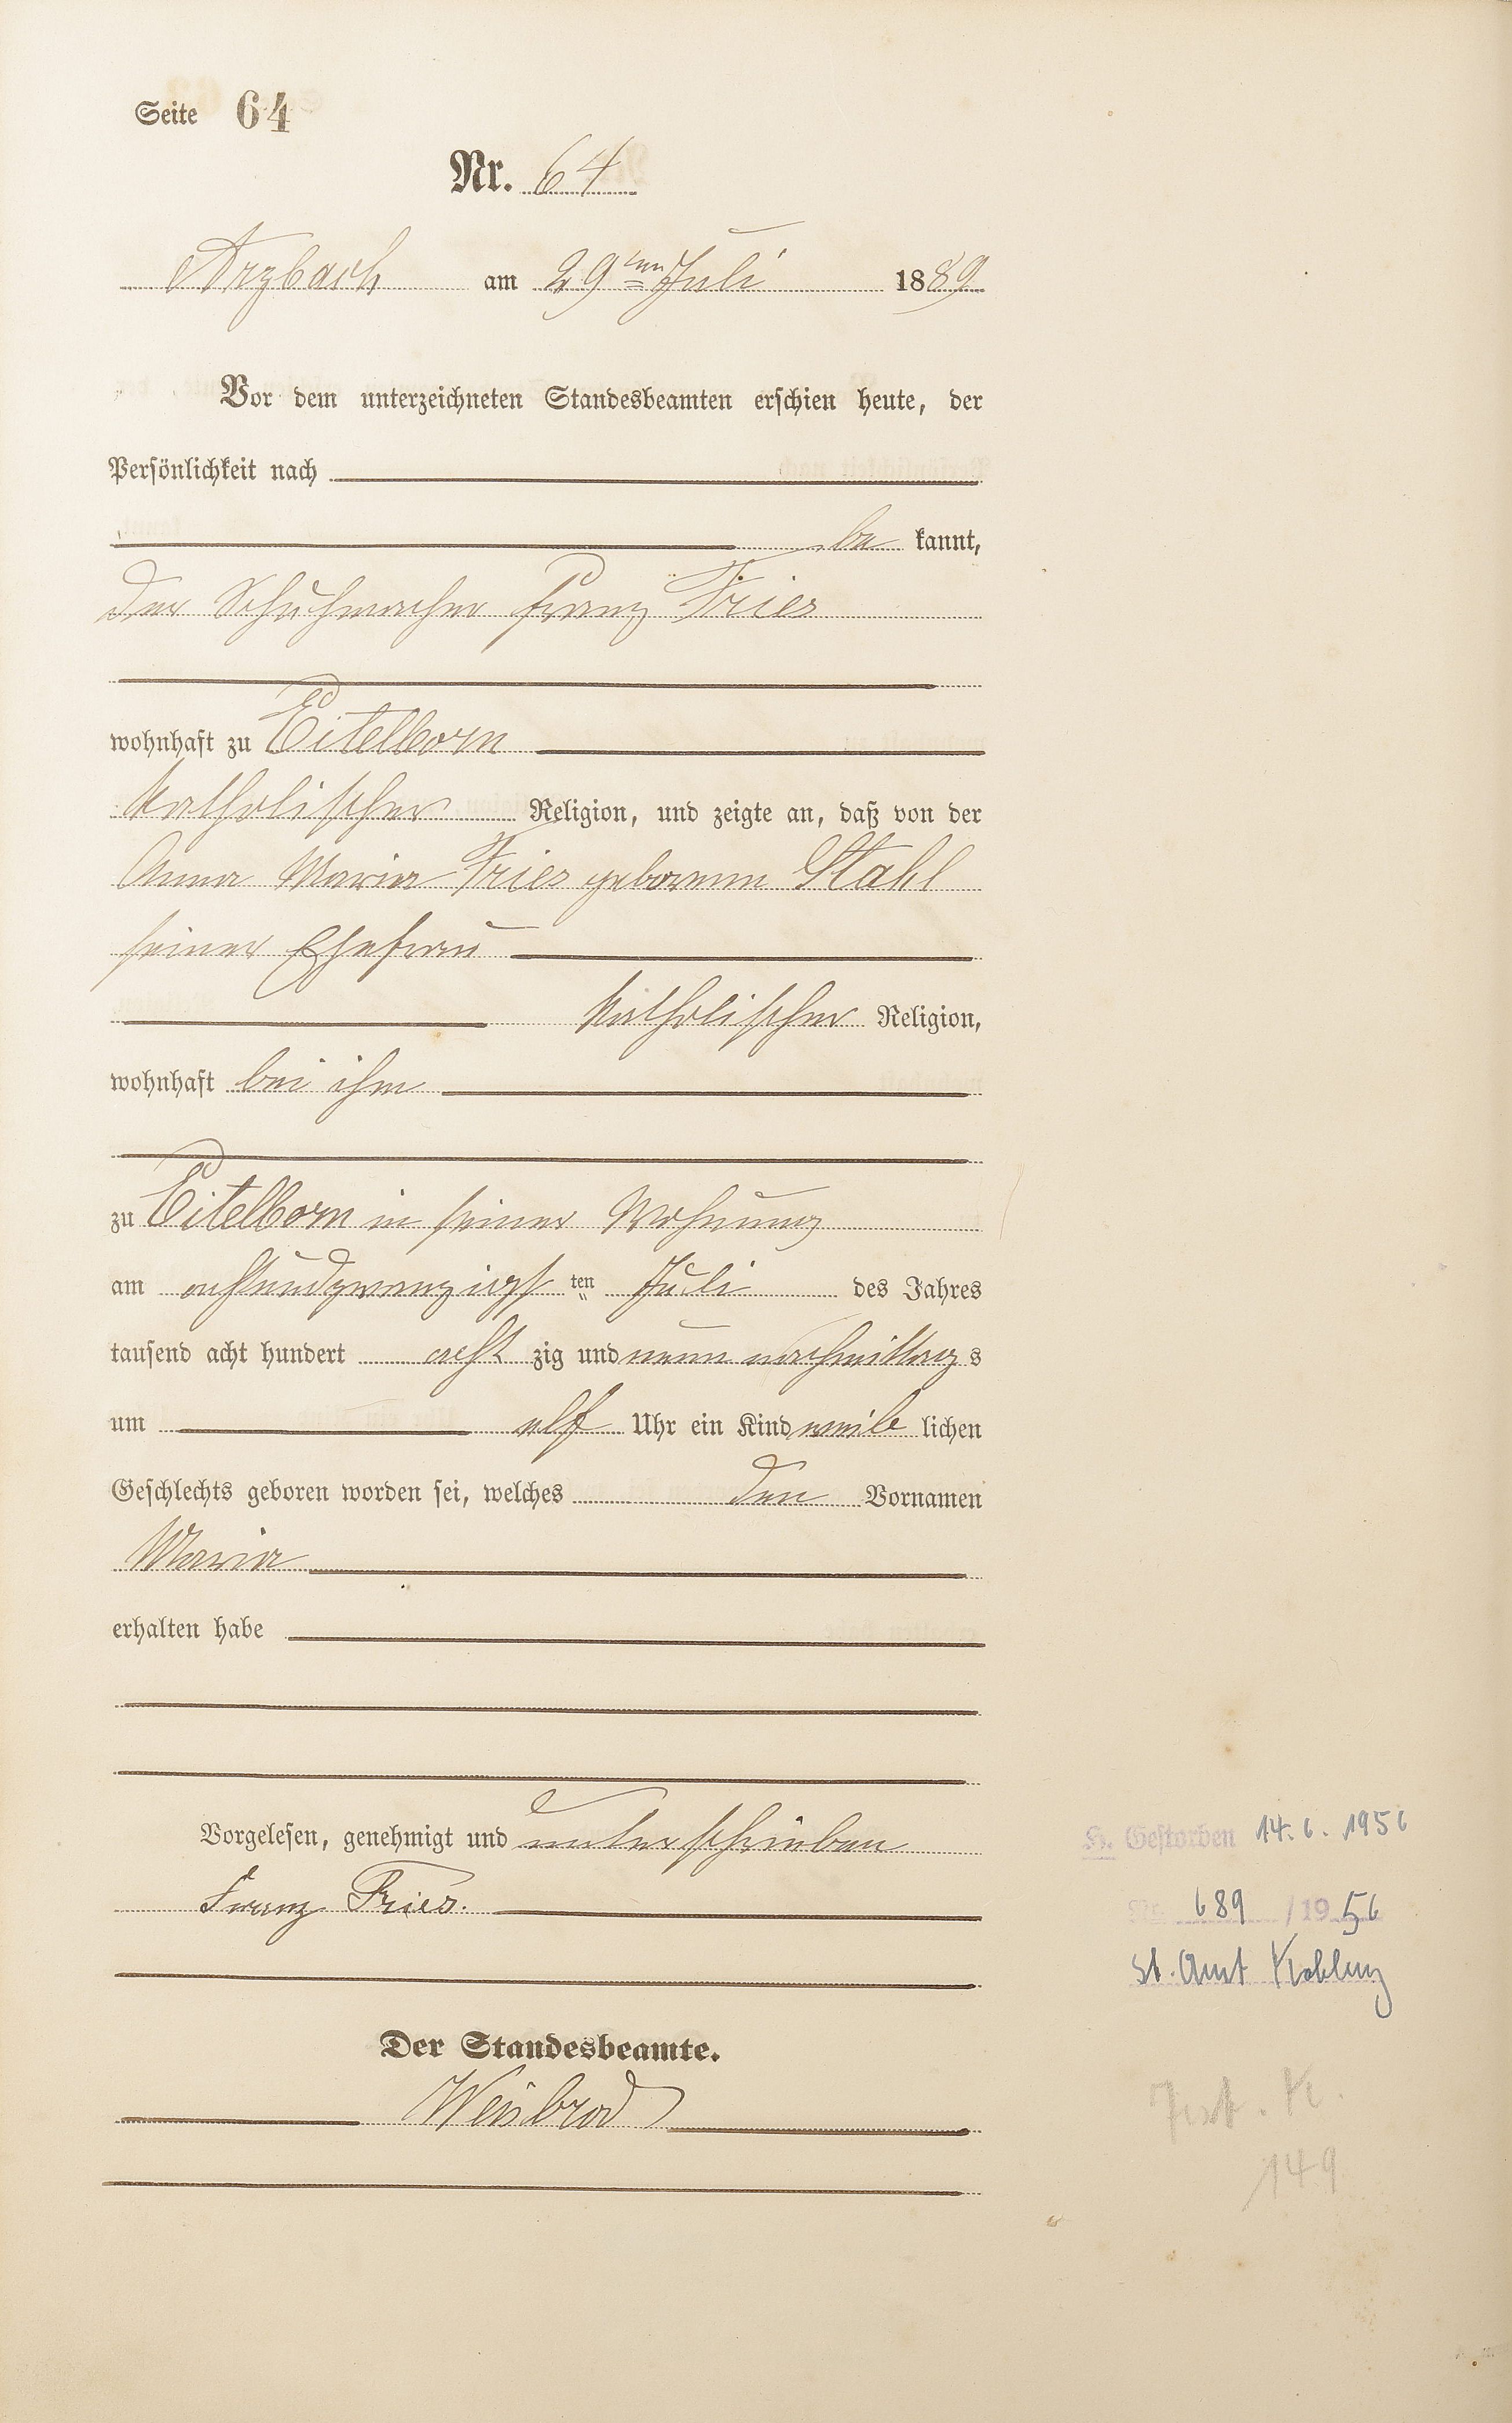 Seite 64
Nr. 64
Arzbach am 29ten Juli 1889
Vor dem unterzeichneten Standesbeamten erschien heute, der
Persönlichkeit nach
be kannt,
der Schuhmacher Franz Fries
wohnhaft zu Eitelborn
katholischer Religion, und zeigte an, daß von der
Anna Maria Fries geborenen Stahl
seiner Ehefrau
katholischer Religion,
wohnhaft bei ihm
zu Eitelborn in seiner Wohnung
am achtundzwanzigsten Juli des Jahres
tausend acht hundert acht zig und neun nachmittags
um elf Uhr ein Kind weib lichen
Geschlechts geboren worden sei, welches den Vornamen
Maria
erhalten habe
Vorgelesen, genehmigt und unterschrieben
Franz Fries.
Der Standesbeamte.
Weisbrod
H. Gestorben 14.6.1956
Nr. 689 /1956
St. Amt Koblenz
149